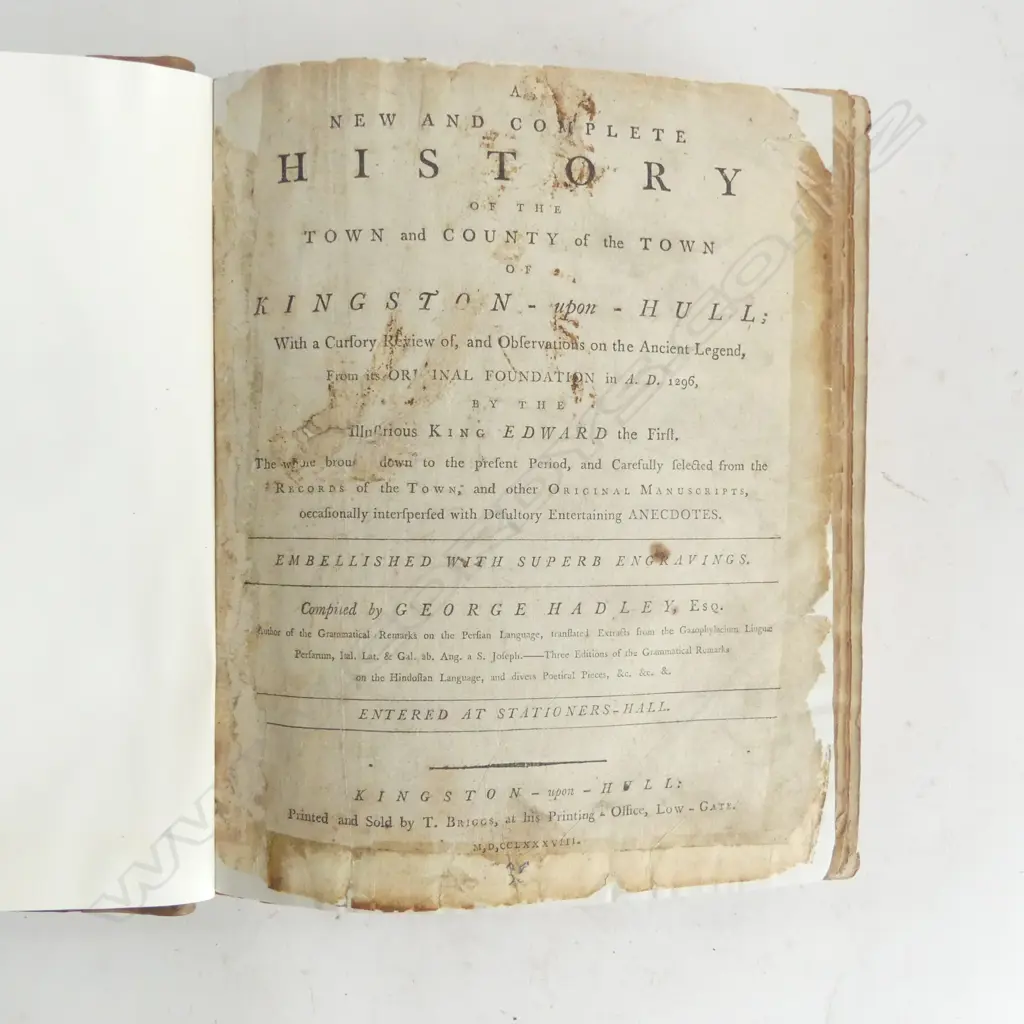 A
NEW AND COMPLETE
HISTORY
OF THE
TOWN and COUNTY of the TOWN
OF
KINGSTON - upon - HULL;
With a Curſory Review of, and Obſervations on the Ancient Legend,
From its ORI INAL FOUNDATION in A. D. 1296,
BY THE
Illuſtrious KING EDWARD the Firſt.
The whole brou down to the preſent Period, and Carefully ſelected from the
RECORDS of the TOWN, and other ORIGINAL MANUSCRIPTS,
occaſionally interſperſed with Deſultory Entertaining ANECDOTES.
EMBELLISHED WITH SUPERB ENGRAVINGS.
Compiled by GEORGE HADLEY, ESQ.
Author of the Grammatical Remarks on the Perſian Language, tranſlated Extracts from the Gazophylacium Linguæ
Perſarum, Ital. Lat. & Gal. ab. Ang. a S. Joſeph.——Three Editions of the Grammatical Remarks
on the Hindoſtan Language, and divers Poetical Pieces, &c. &c. &.
ENTERED AT STATIONERS-HALL.
KINGSTON - upon - HULL:
Printed and Sold by T. BRIGGS, at his Printing - Office, LOW - GATE.
M,D,CCLXXXVIII.